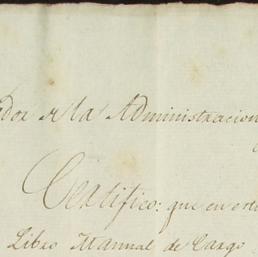 ador de la Administracion
Certifico: que en este
Libro Manual de Cargo